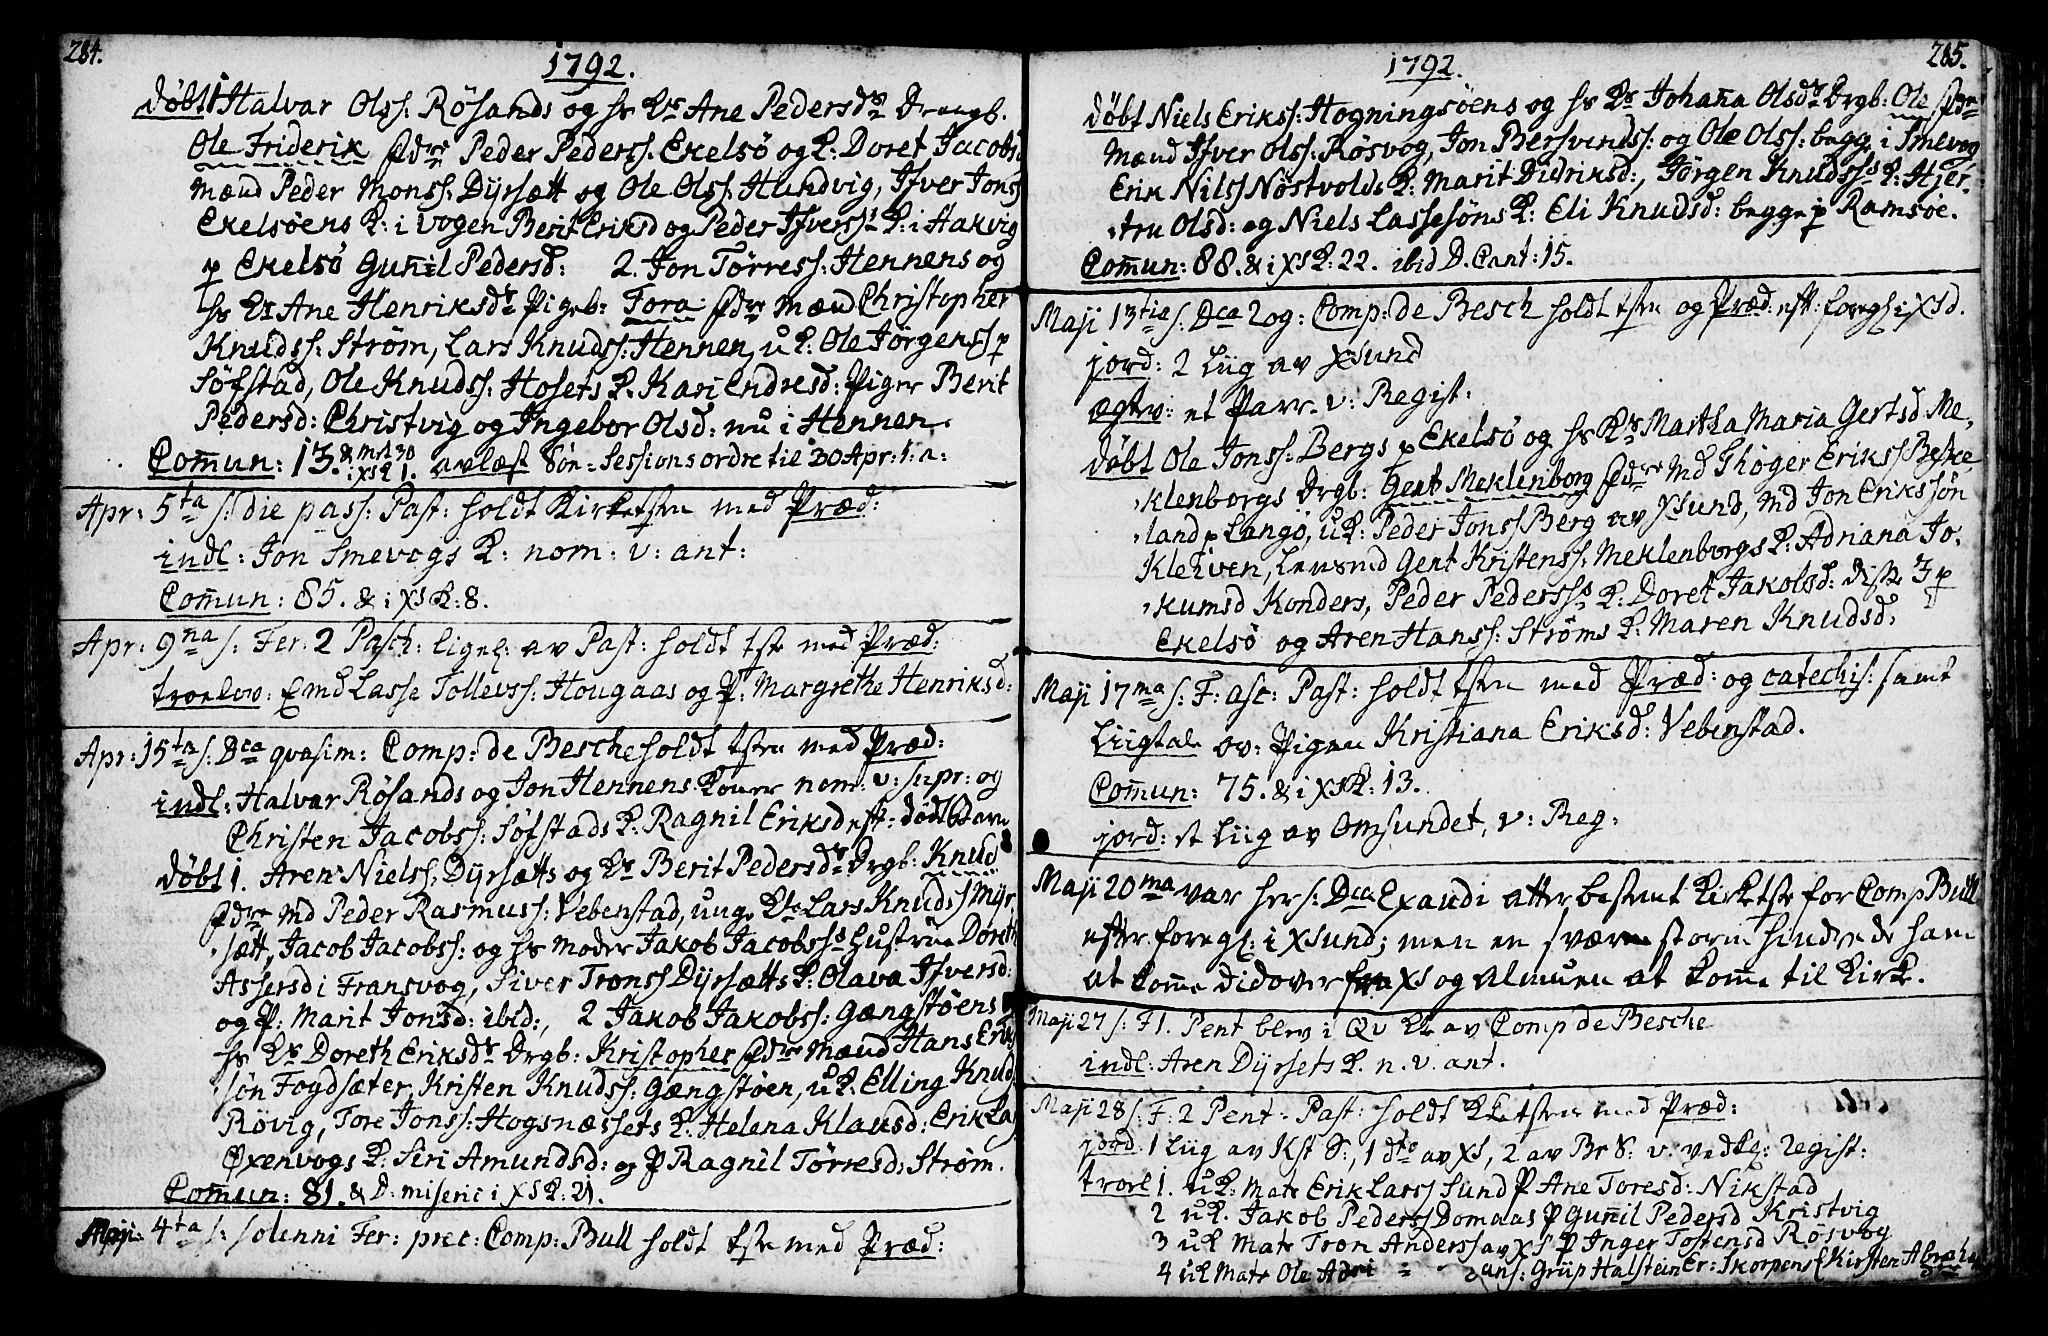 284.
1792.
døbt 1 Halvar Olss: Rösands og hs Kr Ane Pedersdr Drengb.
Ole Friderik fdre Peder Pederss. Ekelsö og K: Doret Jacobs
Mænd Peder Monss: Dÿrsætt og Ole Olss: Hundvig, Ifver Jonss
Ekelsöens K: i Vogen Berit Eriksd og Peder Ifverss K: i Hakvig
p Ekelsö Guñil Pedersd: 2. Jon Törress: Hennens og
hs Kr Ane Henriksdr Pigeb: Fora fdre Mænd Christopher
Knudss: Ström, Lars Knudss: Hennen, uK: Ole Jörgenss p
Söfstad, Ole Knudss: Hosets K. Kari Endresd: Piger Berit
Pedersd: Christvig og Ingebor Olsd: nu i Hennen.
Com̃un: 13. & i XsK 1. avlæst Søn-Sessions ordre til 30 Apr: 1: a:
Apr: 5ta s: die pass: Past: holdt Kirketsten med Præd:
indl: Jon Smevogs K: nom: v: ant:
Com̃un: 85. & i XsK: 8.
Apr: 9na s: Fer: 2 Pasch: ligel: av Past: holdt tste med Præd:
troelov: Emd Lasse Tollevss: Hougaas og P: Margrethe Henriksd:
Apr: 15ta s: Dca qvasim: Comp: de Besche holdt tsten med Præd:
indl: Halvar Rösands og Jon Hennens Koner nom: v: supr: og
Christen Jacobss: Söfstads K: Ragnil Eriksd eft: dödf barn
døbt 1. Aren Nielss: Dÿrsætts og Kr Berit Pedersdr Drgb: Knud
fdre Md Peder Rasmuss: Vebenstad, unge Kte Lars Knudss Mÿr-
sætt, Jacob Jacobss: og hs Moder Jakob Jacobss Hustrue Doreth
Assersd i Fransvog, Siver Tronss Dÿrsætts K: Olava Ifversd:
og P: Marit Jonsd: ibid:, 2 Jakob Jakobss: Gængstöens
hs Kr Doreth Eriksdr Drgb: Kristopher fdre Mænd Hans Erik
sön Fogdsæter, Kristen Knudss: Gængstöen, uK. Elling Knud
Rövig, Tore Jonss: Hogsnæssets K: Helena Klausd: Erik Las
Öxenvogs K: Siri Amundsd: og P Ragnil Törresd: Ström.
Com̃un: 81. & D: miseric i XsK: 21.
Maji: 4ta s: solenni Fer: prec: Comp: Bull holdt tste med Præd:
285.
1792.
døbt Niels Erikss: Hogningsöens og hs Kr Johaña Olsdr Drgb: Ole fdre
Mænd Ifver Olss: Rösvog, Jon Bersvendss: og Ole Olss: begg. i Smevog
Erik Nilss Nöstvolds K: Marit Didriksd:, Jörgen Knudss K: Hjer-
tru Olsd: og Niels Lassesöns K: Eli Knudsd: begge p Ramsöe.
Com̃un: 88. & i XsK: 22. ibid D. Cant: 15.
Maji 13tia s: Dca Rog: Comp: de Besch holdt tsten og Præd: eft: foregl: i Xsd.
jord: 2 Liig av Xsund
ægtev: et Parr. v: Regist:
døbt Ole Jonss: Bergs p Ekelsö og hs Kr Martha Maria Gertsd Me-
klenborgs Drgb: Gert Meklenborg fdre Md Thöger Erikss Beske
land p Langö, uK: Peder Jonss Berg av Xsund, Md Jon Erikssön
Klekven, Lensmd Gert Kristenss: Meklenborgs K: Adriana Jo-
kumsd Konders, Peder Pederss K: Doret Jakobsd: diss 3 p
Ekelsö og Aren Hanss: Ströms K: Maren Knudsd.
Maji 17ma s: F: asc: Past: holdt tsten med Præd: og catechis: samt
Liigtale ov: Pigen Kristiana Eriksd: Vebenstad.
Com̃un: 75. & i XsK: 13.
jord: et Liig av Omsundet, v: Reg:
Maji 20ma var her s: Dca Exaudi atter bestemt Kirketste for Comp Bull
efter foregl: i Xsund; men en svær storm hindrede ham
at kom̃e did over fra Xs og Almuen at kom̃e til Kirk.
Maji 27 s: F1. Pent blev i Qv Kk av Comp de Besche
indl: Aren Dÿrsets K. n. v. ant.
Maji 28 s: F: 2 Pent: Past: holdt Kketsten med Præd:
jord: 1 Liig av Kst S:, 1 dto av Xs, 2 av Br S: v: vedk: Regist:
trovl 1. uK: Mate Erik Larss Sund P Ane Toresd: Nikstad
2 uK. Jakob Pederss Domaas P Guñil Pedersd Kristvig
3 uK Mate Tron Anderss av Xs P Inger Tostensd Rösvog
4 uK Mate Ole Adri = ans: Grüp Halstein Er: Skorpens E Kirsten Abraha